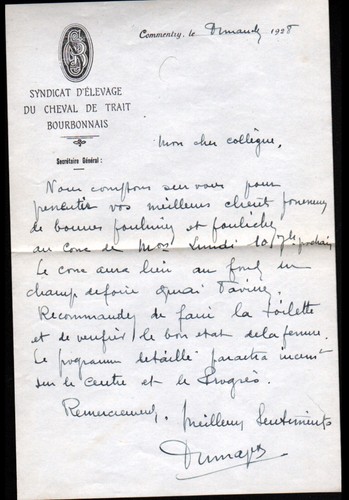 Commentry, le Dimanche 1928
SYNDICAT D'ÉLEVAGE
DU CHEVAL DE TRAIT
BOURBONNAIS
Secrétaire Général :
Mon cher collègue,
Nous comptons sur vous pour
vos meilleurs client
de bonnes et
au conc de Lundi 10 7bre prochain
Le conc aura lieu au fond du
champ de foire quai
Recommandez de faire la toilette
et de verifier le bon etat de la ferrure.
Le programme detaillé paraitra
sur le Centre et le Progrès.
Remerciements, Meilleurs Sentiments